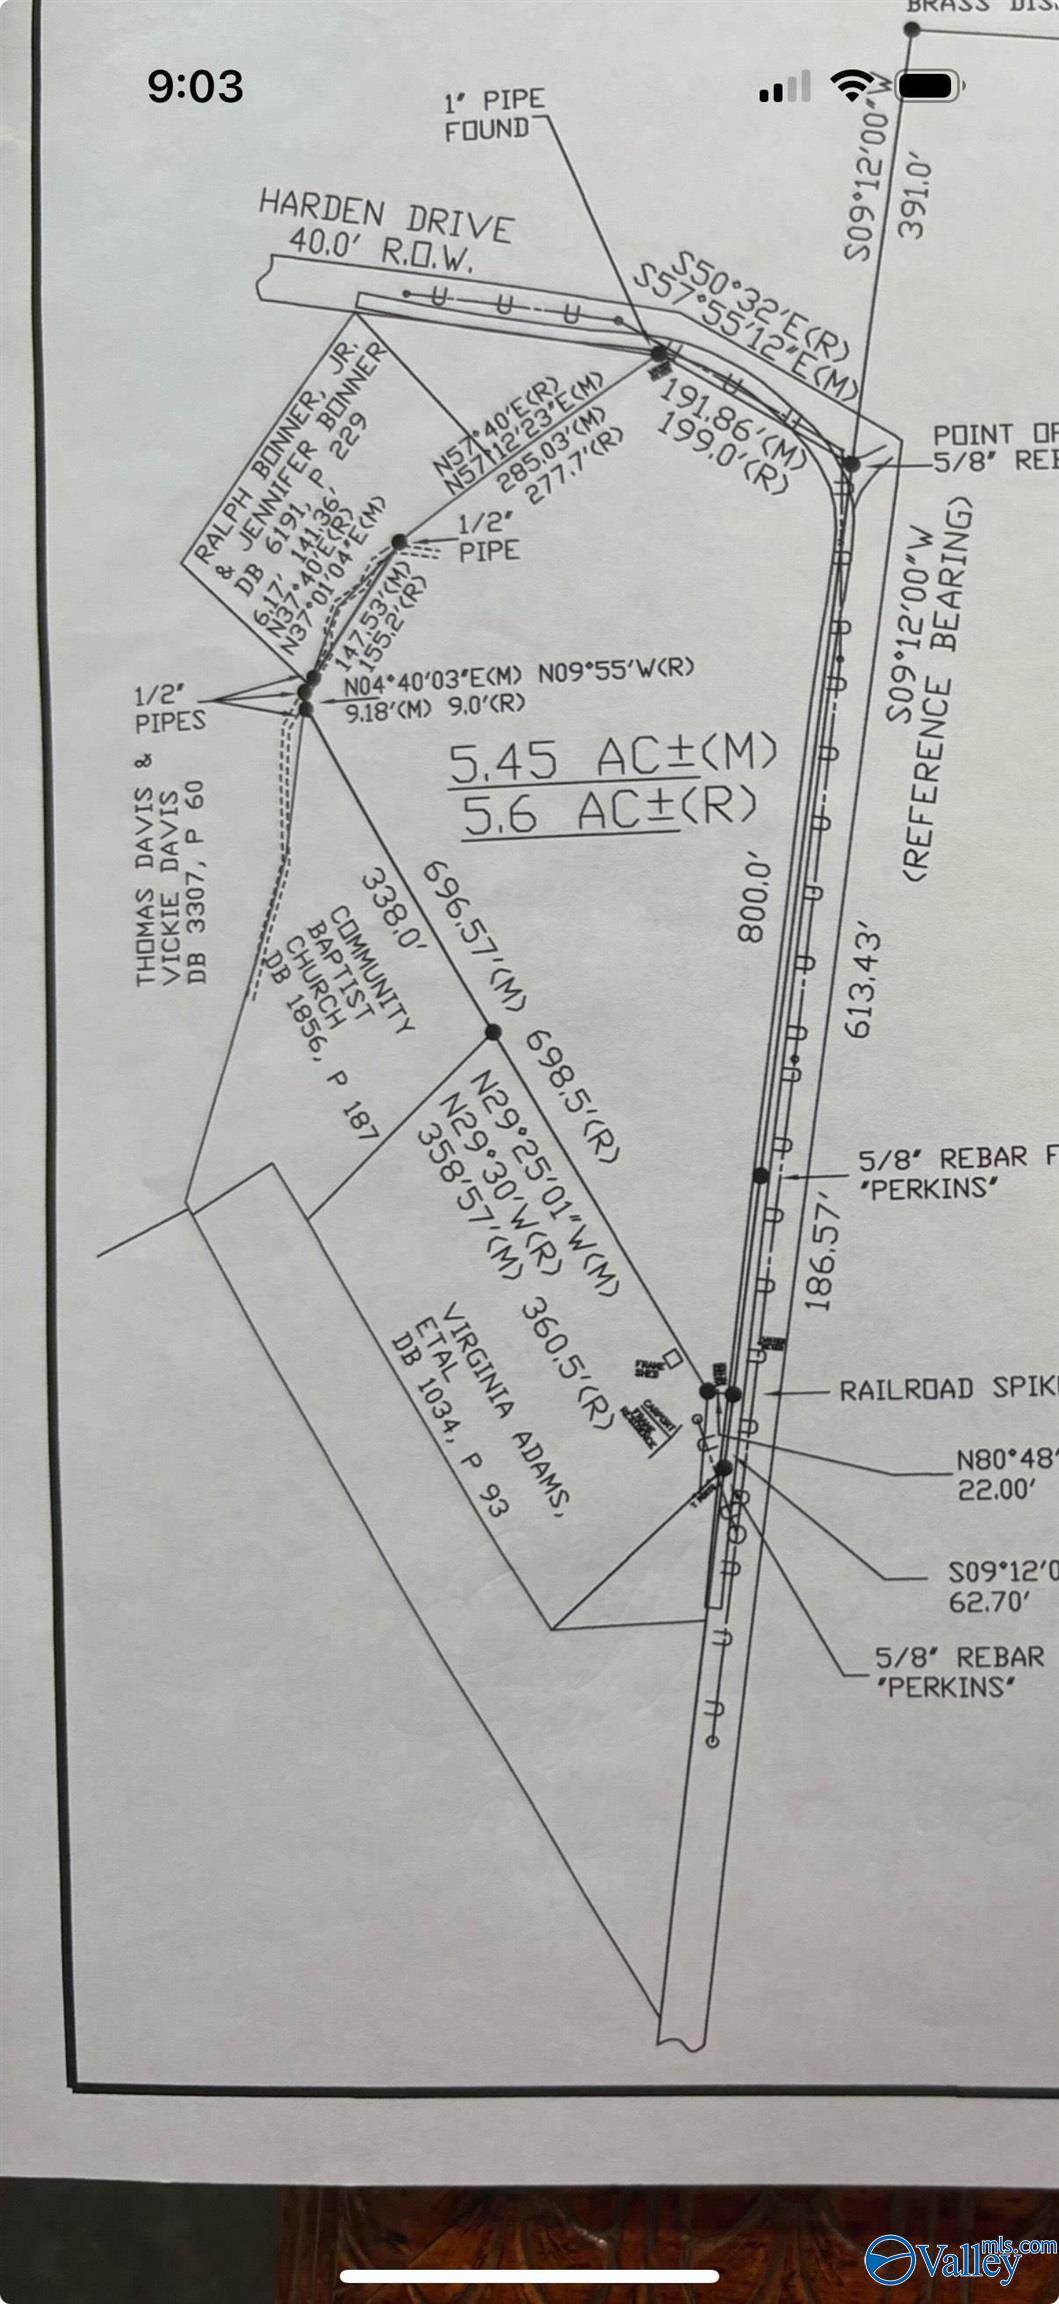 BRASS DIS
9:03
1" PIPE
FOUND
S09°12'00"W
391.0'
HARDEN DRIVE
40.0' R.O.W.
S50°32'E(R)
S57°55'12"E(M)
191.86'(M)
199.0'(R)
POINT OF
5/8" REB
RALPH BONNER, JR.
& JENNIFER BONNER
DB 6191, P 229
6.17' 141.36'
N37°40'E(R)
N37°01'04"E(M)
147.53'(M)
155.2'(R)
N57°40'E(R)
N57°12'23"E(M)
285.03'(M)
277.7'(R)
1/2"
PIPE
S09°12'00"W
(REFERENCE BEARING)
1/2"
PIPES
N04°40'03"E(M) N09°55'W(R)
9.18'(M) 9.0'(R)
5.45 AC±(M)
5.6 AC±(R)
THOMAS DAVIS &
VICKIE DAVIS
DB 3307, P 60
800.0'
613.43'
338.0'
696.57'(M) 698.5'(R)
COMMUNITY
BAPTIST
CHURCH
DB 1856, P 187
N29°25'01"W(M)
N29°30'W(R)
358'57'(M) 360.5'(R)
5/8" REBAR F
"PERKINS"
186.57'
VIRGINIA ADAMS,
ETAL
DB 1034, P 93
FRAME
SHED
CARPORT
FRAME
RESIDENCE
RAILROAD SPIK
N80°48'
22.00'
S09°12'0
62.70'
5/8" REBAR
"PERKINS"
Valleymls.com